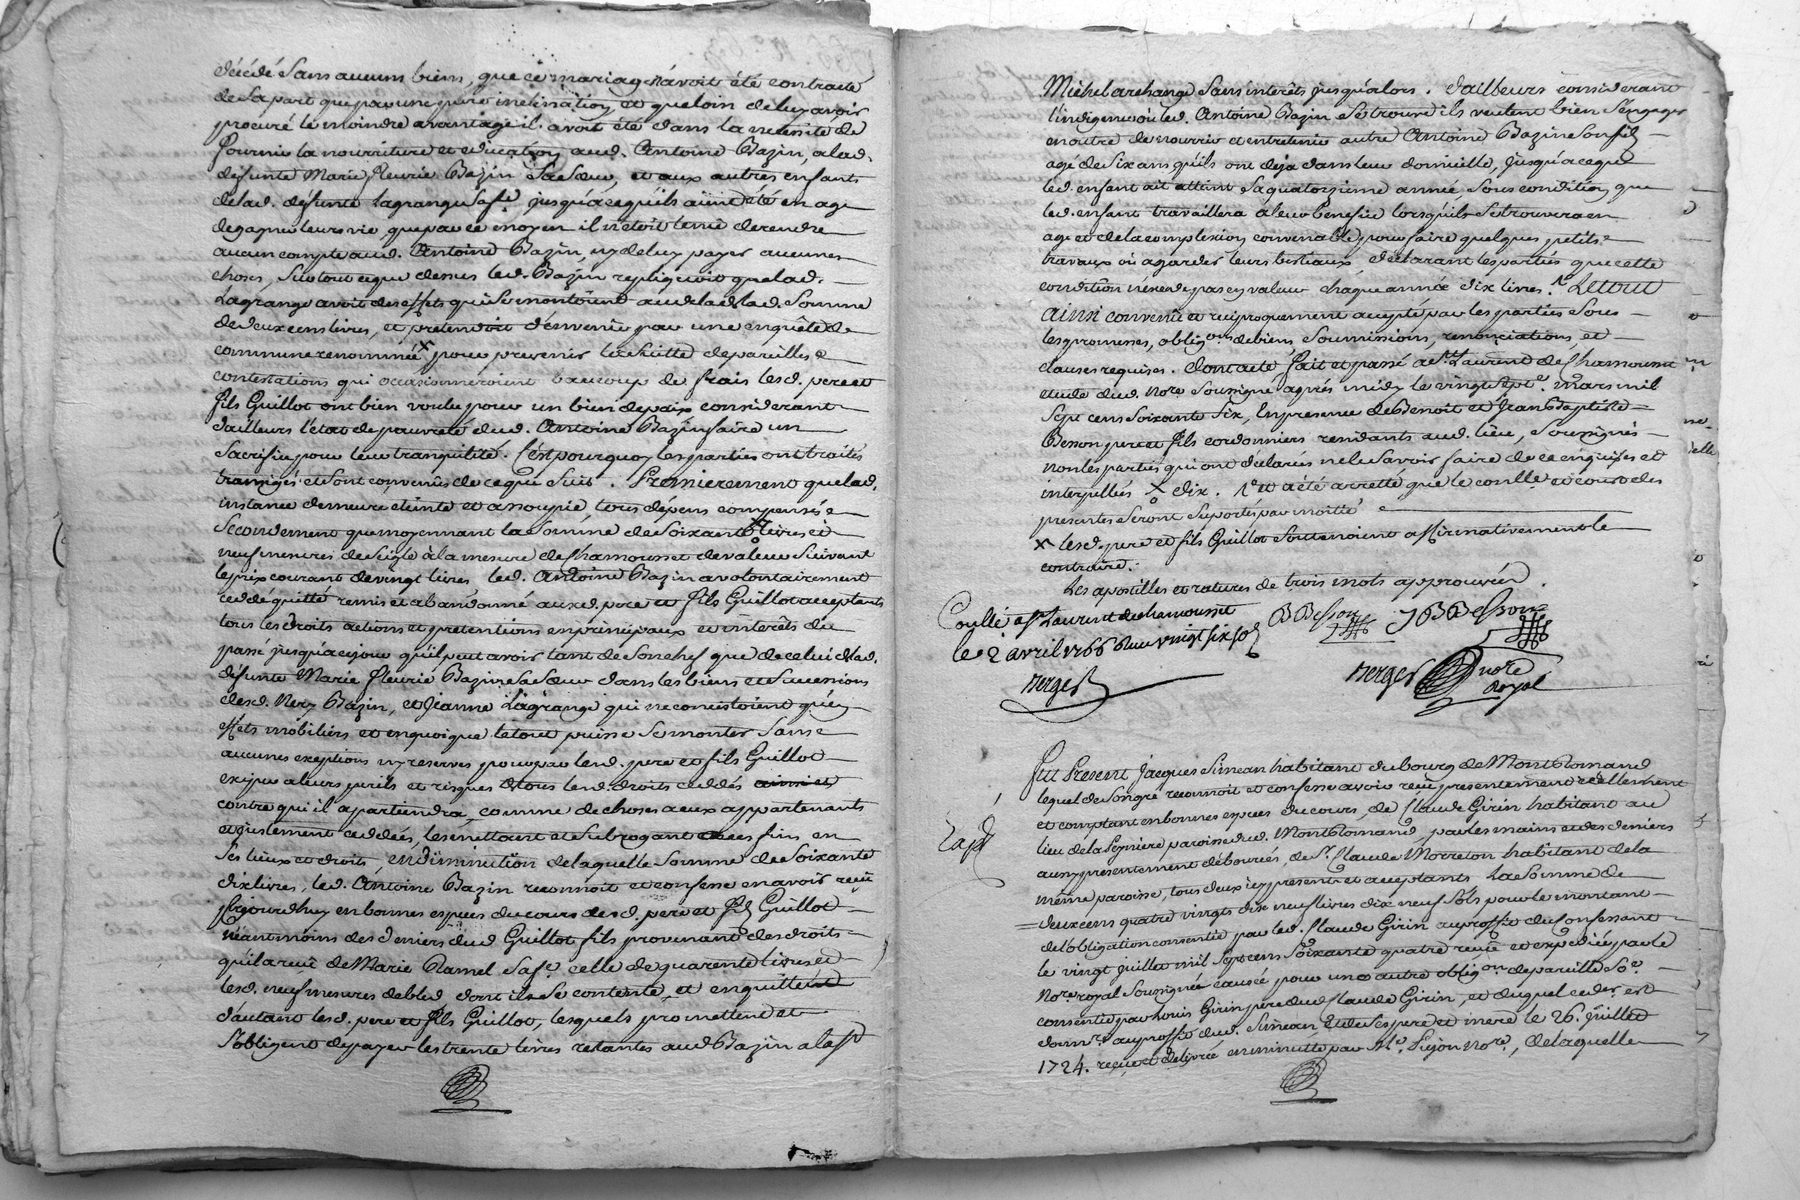 décédé sans aucuns biens, que ce mariage n'avoit été contracté
de sa part que par une pure inclination, et que loin de luy avoir
procuré le moindre avantage il avoit été dans la necessité de
fournir la nourriture et education aud. Antoine Bazin, a lad.
défunte Marie fleurie Bazin sa sœur, et aux autres enfants
de lad. défunte Lagrange sa fe. jusqu'à ce qu'ils aïint été en age
de gagner leur vie, que par ce moyen il n'etoit tenu de rendre
aucun compte aud. Antoine Bazin, ny de luy payer aucunes
choses, sur tout ce que dessus led. Bazin repliquoit que lad.
Lagrange avoit des effets qui se montoint au dela de lad. somme
de deux cens livres, et pretendoit d'en venir par une enquête de
commune renommée x pour prevenir la suitte de pareilles
contestations qui occasionneroient baucoup de frais lesd. pere et
fils Guillot ont bien voulu pour un bien de paix considerant
d'ailleurs l'état de pauvreté dud. Antoine Bazin faire un
sacrifice pour leur tranquilité. C'est pourquoy les parties ont traités
transigés et sont convenües de ce que suit. Premierement que lad.
instance demeure éteinte et assoupie, tous dépens compensés
Secondement que moyennant la somme de soixante x livres et
neuf mesures de seigle à la mesure de Chamousset de valeur suivant
le prix courant de vingt livres led. Antoine Bazin a volontairement
ceddé quitté remis et abandonné auxd. pere et fils Guillot acceptants
tous les droits actions et pretentions en principaux et interêts du
passé jusqu'a ce jour qu'il peut avoir tant de son chef que de celui de lad.
défunte Marie fleurie Bazin sa sœur dans les biens et successions
desd. Bazin, et Jeanne Lagrange qui ne consistoient qu'en
effets mobiliers et en quoi que le tout puisse se monter sans
aucunes exceptions ny reserves pour par lesd. pere et fils Guillot
exiger a leurs perils et risques tous lesd. droits ceddés ainsi et
contre qui il apartiendra, comme de choses a eux appartenants
et justement ceddées, les mettant et subrogeant a ces fins en
ses lieux et droits, en diminution de laquelle somme de soixante
dix livres, led. Antoine Bazin reconnoit et confesse en avoir reçu
ce jourdhuy en bonnes especes du cours desd. pere et fils Guillot
néantmoins des deniers dud Guillot fils provenant des droits
qu'il a reçu de Marie Ramel sa fe. celle de quarente livres et
lesd. neuf mesures de bled dont il se contente, et en quitte
d'autant lesd. pere et fils Guillot, lesquels promettent et
s'obligent de payer les trente livres restantes aud Bazin a la st
Michel archange sans interêts jusqu'alors. d'ailleurs considerant
l'indigence où led. Antoine Bazin se trouve ils veulent bien s'engager
en outre de nourrir et entretenir autre Antoine Bazin son fils
agé de six ans qu'ils ont deja dans leur domicille, jusqu'a ce que
led. enfant ait atteint sa quatorzieme année sous condition que
led. enfant travaillera a leur benefice lorsqu'il se trouvera en
age et de la complexion convenable pour faire quelques petits
travaux ou a garder leurs bestiaux, déclarant les parties que cette
condition n'exede pas en valeur chaque année dix livres. Le tout
ainsi convenû et reciproquement accepté par les parties sous
les promesses, obligons. de biens soumissions, renonciations, et
clauses requises. dont acte fait et passé a St. Laurent de Chamousset
etude dud. Nore. soussigné après midy le vingt sept mars mil
sept cens soixante six, En presence de Benoit et Jean Baptiste
Besson pere et fils cordonniers residants aud. lieu, soussignés
non les parties qui ont declarés ne le savoir faire de ce enquises et
interpellés x dix. et a été arretté que le conlle. et cout des
presentes seront suportés par moitié
x lesd. pere et fils Guillot soutenoient affirmativement le
contraire.
Les apostilles et ratures de trois mots approuvées.
Conllé a St Laurent de chamousset BBesson JBBesson
le 2 avril 1766 Reçu vingt six sols
Berger Berger nore
royal
fut Present Jacques Simean habitant du bourg de Montromand
lequel de son gré reconnoit et confesse avoir reçu presentement réellement
et comptant en bonnes especes du cours, de Claude Girin habitant au
lieu de la paroisse dud. Montromand, par les mains et des deniers
aussy presentement débourcés, de Sr. Claude Morreton habitant de la
même paroisse, tous deux icy presents et acceptants la somme de
deux cens quatre vingts dix neuf livres dix neuf sols pour le montant
de l'obligation consentie par led. Claude Girin au proffit du confessant
le vingt juillet mil sept cens soixante quatre reçue et expediée par le
Nore. royal soussigné causée pour une autre obligon. de pareille soe.
consentie par Louis Girin pere dud Claude Girin, et duquel ce der. est
au proffit dud. Simean et de ses pere et mere le 26. juillet
1724. reçue et delivrée en minutte par Me. Nore., de laquelle